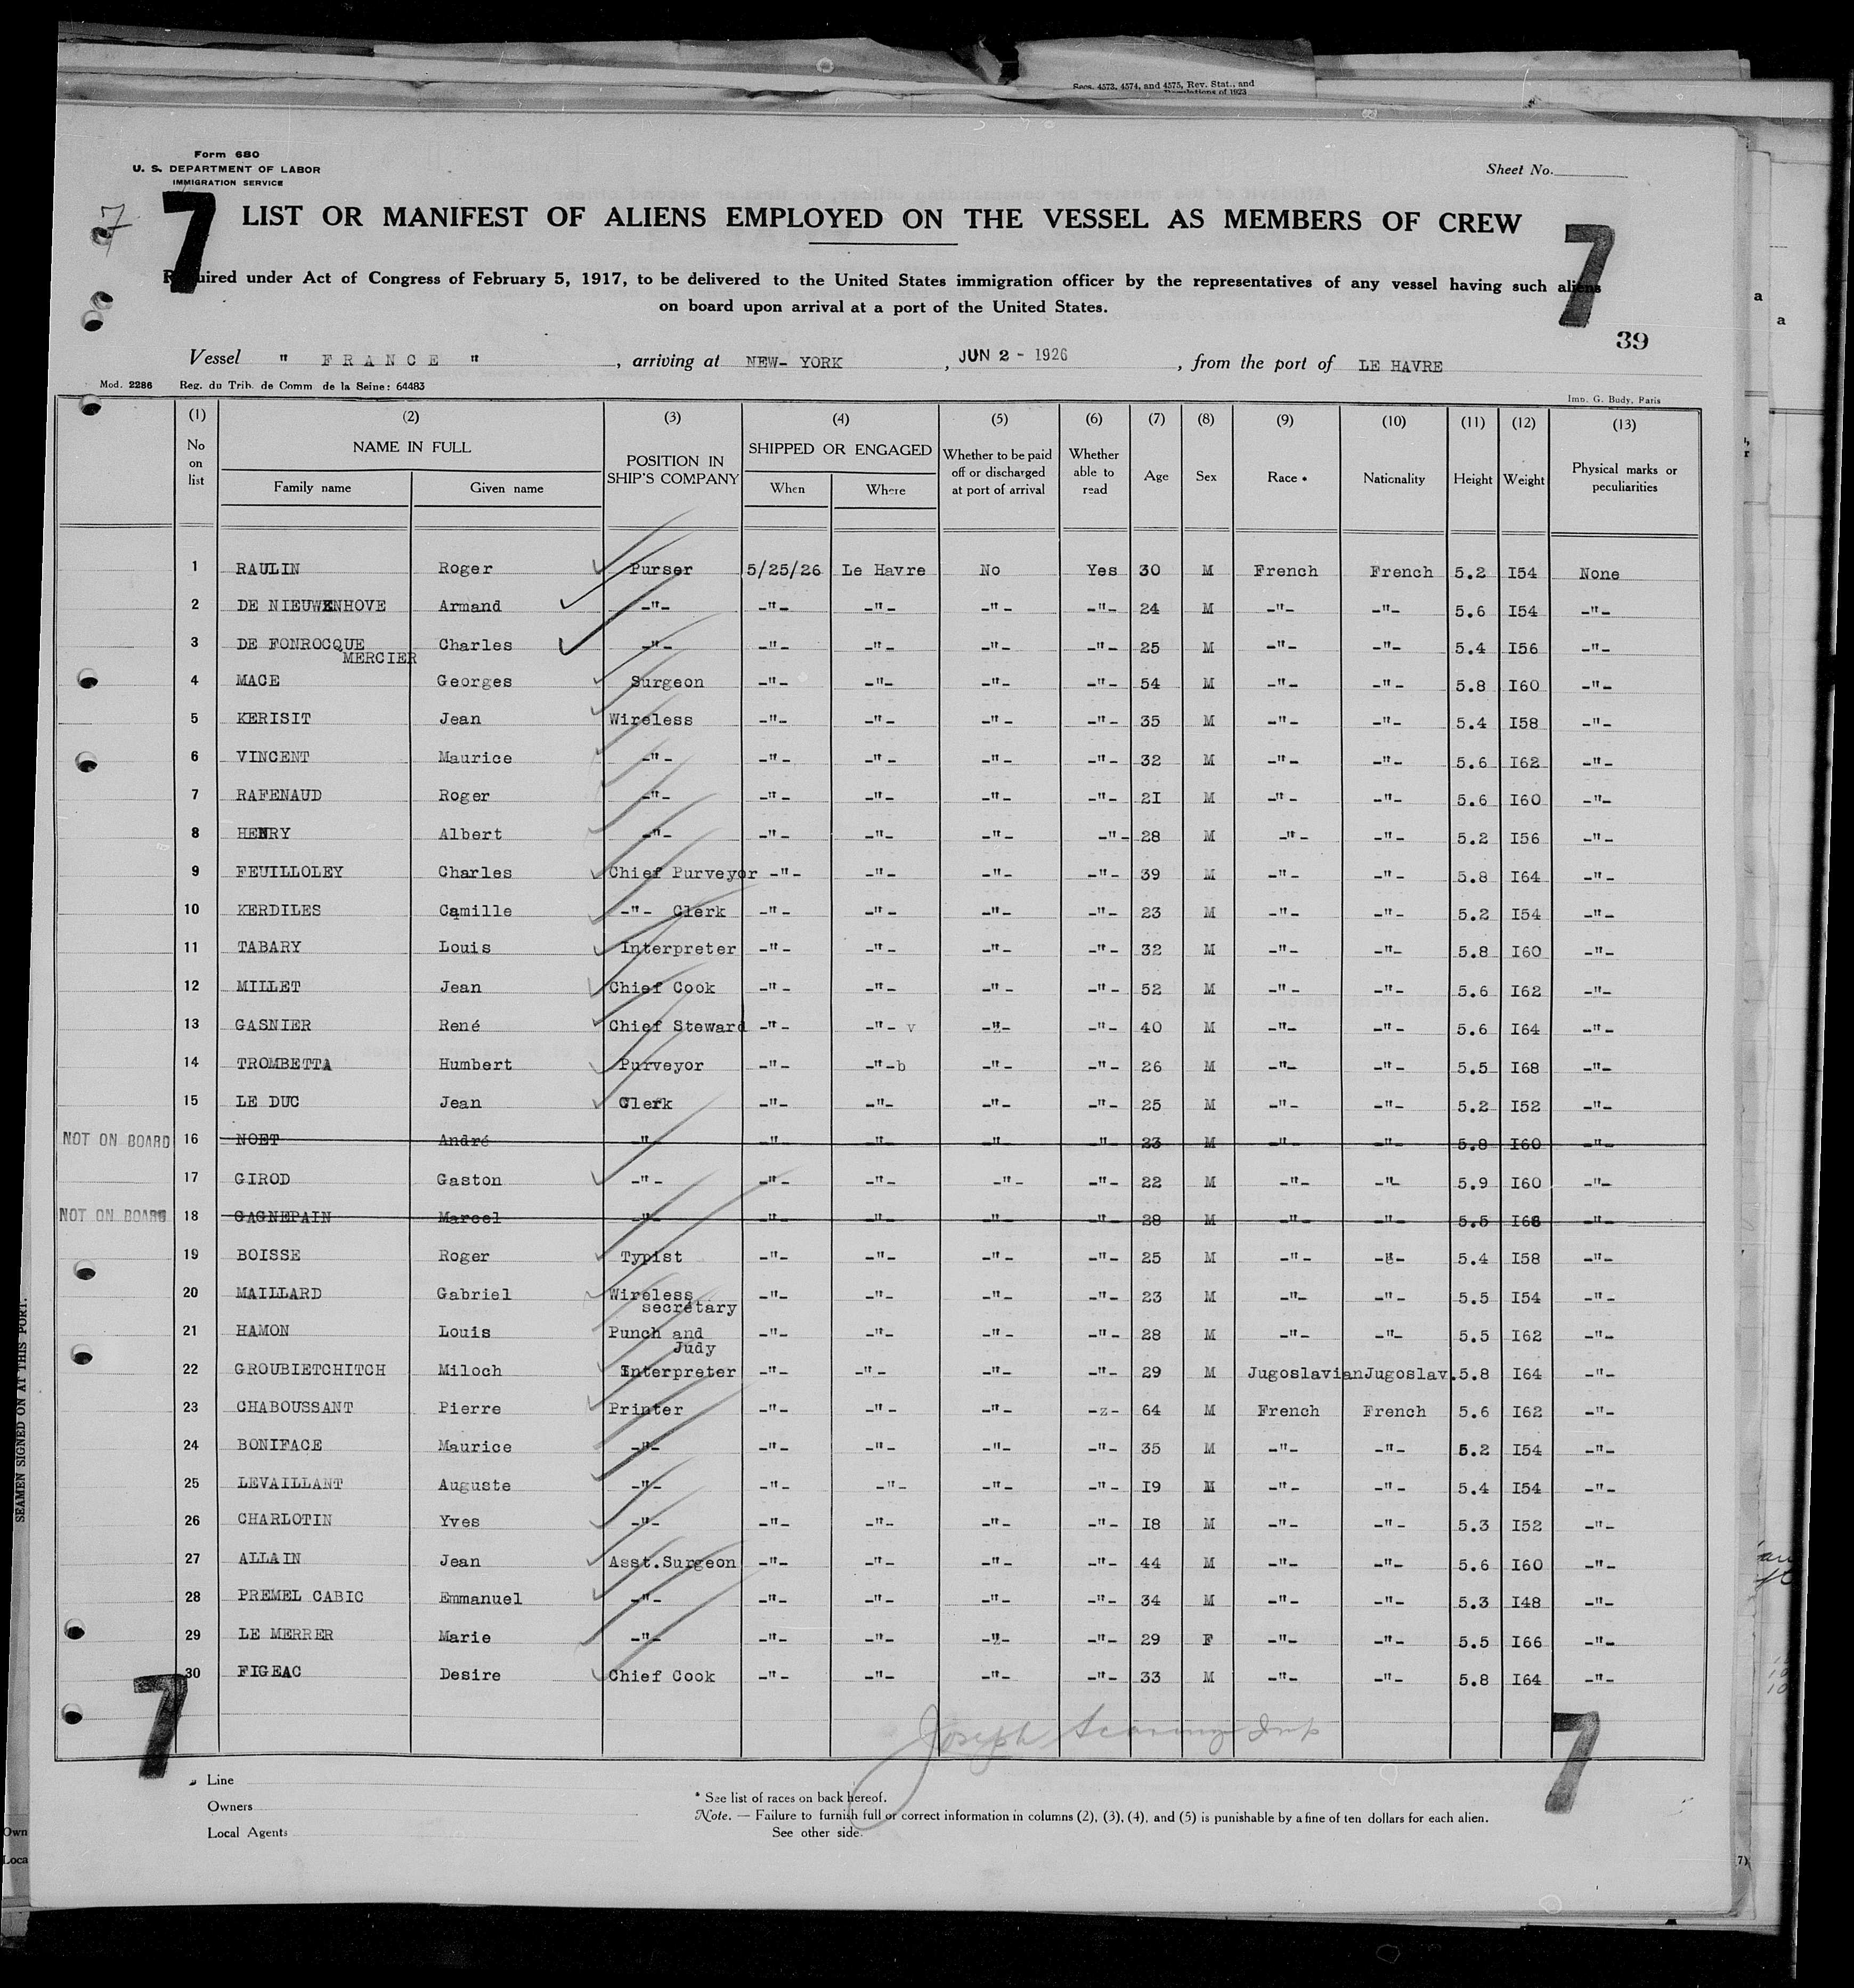 Secs. 4573, 4574, and 4575, Rev. Stat., and
Regulations of 1923
Form 680
U. S. DEPARTMENT OF LABOR
IMMIGRATION SERVICE
Sheet No.
7
7 LIST OR MANIFEST OF ALIENS EMPLOYED ON THE VESSEL AS MEMBERS OF CREW 7
Required under Act of Congress of February 5, 1917, to be delivered to the United States immigration officer by the representatives of any vessel having such aliens
on board upon arrival at a port of the United States.
39
Vessel " FRANCE " , arriving at NEW- YORK , JUN 2 - 1926 , from the port of LE HAVRE
Mod. 2286 Reg. du Trib. de Comm de la Seine: 64483
Imp. G. Budy, Paris
(1) No on list (2) NAME IN FULL Family name Given name (3) POSITION IN SHIP'S COMPANY (4) SHIPPED OR ENGAGED When Where (5) Whether to be paid off or discharged at port of arrival (6) Whether able to read (7) Age (8) Sex (9) Race * (10) Nationality (11) Height (12) Weight (13) Physical marks or peculiarities
1 RAULIN Roger Purser 5/25/26 Le Havre No Yes 30 M French French 5.2 I54 None
2 DE NIEUWENHOVE Armand -"- -"- -"- -"- -"- 24 M -"- -"- 5.6 I54 -"-
3 DE FONROCQUE MERCIER Charles -"- -"- -"- -"- -"- 25 M -"- -"- 5.4 I56 -"-
4 MACE Georges Surgeon -"- -"- -"- -"- 54 M -"- -"- 5.8 I60 -"-
5 KERISIT Jean Wireless -"- -"- -"- -"- 35 M -"- -"- 5.4 I58 -"-
6 VINCENT Maurice -"- -"- -"- -"- -"- 32 M -"- -"- 5.6 I62 -"-
7 RAFENAUD Roger -"- -"- -"- -"- -"- 2I M -"- -"- 5.6 I60 -"-
8 HENRY Albert -"- -"- -"- -"- -"- 28 M -"- -"- 5.2 I56 -"-
9 FEUILLOLEY Charles Chief Purveyor -"- -"- -"- -"- 39 M -"- -"- 5.8 I64 -"-
10 KERDILES Camille -"- Clerk -"- -"- -"- -"- 23 M -"- -"- 5.2 I54 -"-
11 TABARY Louis Interpreter -"- -"- -"- -"- 32 M -"- -"- 5.8 I60 -"-
12 MILLET Jean Chief Cook -"- -"- -"- -"- 52 M -"- -"- 5.6 I62 -"-
13 GASNIER René Chief Steward -"- -"- v -"- -"- 40 M -"- -"- 5.6 I64 -"-
14 TROMBETTA Humbert Purveyor -"- -"-b -"- -"- 26 M -"- -"- 5.5 I68 -"-
15 LE DUC Jean Clerk -"- -"- -"- -"- 25 M -"- -"- 5.2 I52 -"-
NOT ON BOARD 16 NOET André -"- -"- -"- -"- -"- 23 M -"- -"- 5.8 I60 -"-
17 GIROD Gaston -"- -"- -"- -"- -"- 22 M -"- -"- 5.9 I60 -"-
NOT ON BOARD 18 GAGNEPAIN Marcel -"- -"- -"- -"- -"- 28 M -"- -"- 5.5 I66 -"-
19 BOISSE Roger Typist -"- -"- -"- -"- 25 M -"- -"- 5.4 I58 -"-
20 MAILLARD Gabriel Wireless secretary -"- -"- -"- -"- 23 M -"- -"- 5.5 I54 -"-
21 HAMON Louis Punch and Judy -"- -"- -"- -"- 28 M -"- -"- 5.5 I62 -"-
22 GROUBIETCHITCH Miloch Interpreter -"- -"- -"- -"- 29 M Jugoslavian Jugoslav. 5.8 I64 -"-
23 CHABOUSSANT Pierre Printer -"- -"- -"- -z- 64 M French French 5.6 I62 -"-
24 BONIFACE Maurice -"- -"- -"- -"- -"- 35 M -"- -"- 5.2 I54 -"-
25 LEVAILLANT Auguste -"- -"- -"- -"- -"- I9 M -"- -"- 5.4 I54 -"-
26 CHARLOTIN Yves -"- -"- -"- -"- -"- I8 M -"- -"- 5.3 I52 -"-
27 ALLAIN Jean Asst.Surgeon -"- -"- -"- -"- 44 M -"- -"- 5.6 I60 -"-
28 PREMEL CABIC Emmanuel -"- -"- -"- -"- -"- 34 M -"- -"- 5.3 I48 -"-
29 LE MERRER Marie -"- -"- -"- -"- -"- 29 F -"- -"- 5.5 I66 -"-
30 FIGEAC Desire Chief Cook -"- -"- -"- -"- 33 M -"- -"- 5.8 I64 -"-
Joseph
7 7
Line
Owners
Local Agents
* See list of races on back hereof.
Note. — Failure to furnish full or correct information in columns (2), (3), (4), and (5) is punishable by a fine of ten dollars for each alien.
See other side.
SEAMEN SIGNED ON AT THIS PORT.
Own
Loca